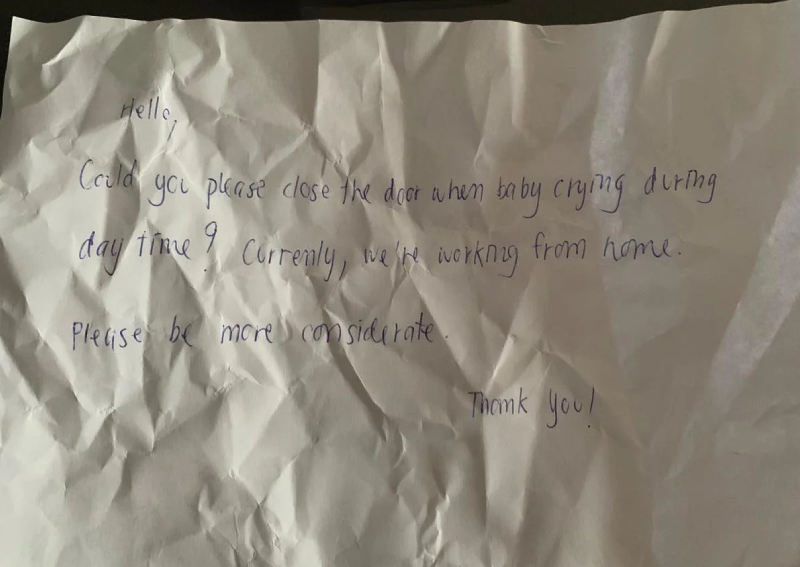 Hello,
Could you please close the door when baby crying during
day time? Currenly, we're working from home.
Please be more considerate.
Thank you!